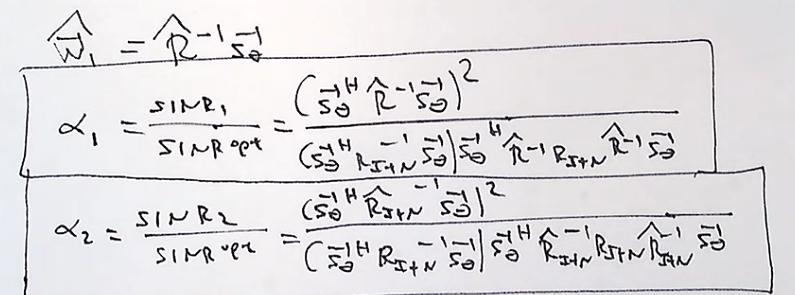 $\hat{\vec{w}}_1 = \hat{R}^{-1} \vec{s}_\theta$
$\alpha_1 = \frac{SINR_1}{SINR^{opt}} = \frac{(\vec{s}_\theta^H \hat{R}^{-1} \vec{s}_\theta)^2}{(\vec{s}_\theta^H R_{I+N}^{-1} \vec{s}_\theta) \vec{s}_\theta^H \hat{R}^{-1} R_{I+N} \hat{R}^{-1} \vec{s}_\theta}$
$\alpha_2 = \frac{SINR_2}{SINR^{opt}} = \frac{(\vec{s}_\theta^H \hat{R}_{I+N}^{-1} \vec{s}_\theta)^2}{(\vec{s}_\theta^H R_{I+N}^{-1} \vec{s}_\theta) \vec{s}_\theta^H \hat{R}_{I+N}^{-1} R_{I+N} \hat{R}_{I+N}^{-1} \vec{s}_\theta}$